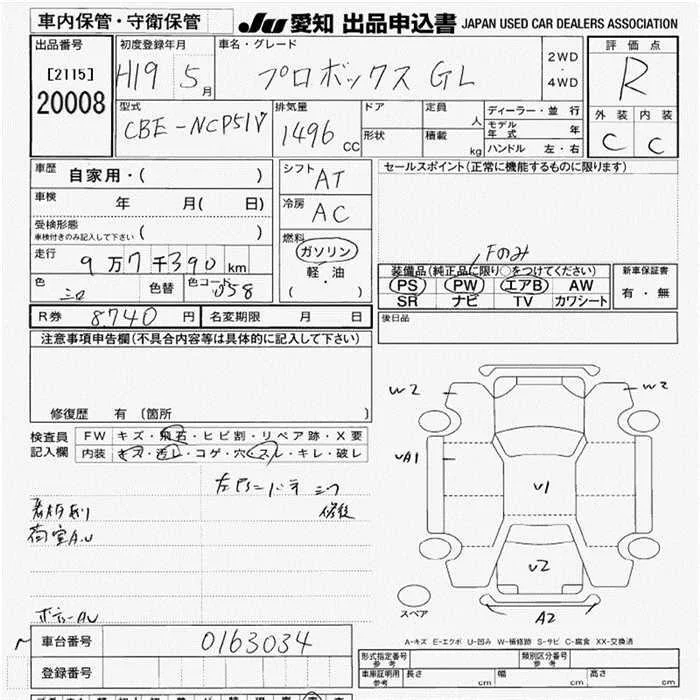 車内保管・守衛保管
JU 愛知 出品申込書 JAPAN USED CAR DEALERS ASSOCIATION
出品番号
[2115]
20008
初度登録年月
H19 5月
車名・グレード
プロボックス GL
2WD
・
4WD
評価点
R
型式
CBE-NCP51V
排気量
1496 cc
ドア
形状
定員
人
積載
kg
ディーラー・並行
モデル年式 年
ハンドル 左・右
外装 内装
C C
車歴 自家用・( )
車検 年 月( 日)
受検形態
車検付きのみ記入して下さい
走行 9万7千390km
色 シロ 色替 色コード 058
シフト AT
冷房 AC
燃料
ガソリン
軽・油
( ・ )
セールスポイント(正常に機能するものに限ります)
Fのみ
装備品(純正品に限り○をつけてください)
PS PW エアB AW
SR ナビ TV カワシート
新車保証書
有・無
R券 8,740円 名変期限 月 日
後日品
注意事項申告欄(不具合内容等は具体的に記入して下さい)
修復歴 有 [箇所 ]
検査員
記入欄
FW キズ・飛石・ヒビ割・リペア跡・X要
内装 キズ・汚レ・コゲ・穴・スレ・キレ・破レ
荷室A.U
ボディーAU
W2
W2
UA1
U1
U2
A2
スペア
A-キズ E-エクボ U-凹み W-補修跡 S-サビ C-腐食 XX-交換済
車台番号 0163034
登録番号
形式指定番号
参考
類別区分番号
参考
車庫証明用
参考
長さ cm 幅 cm 高さ cm